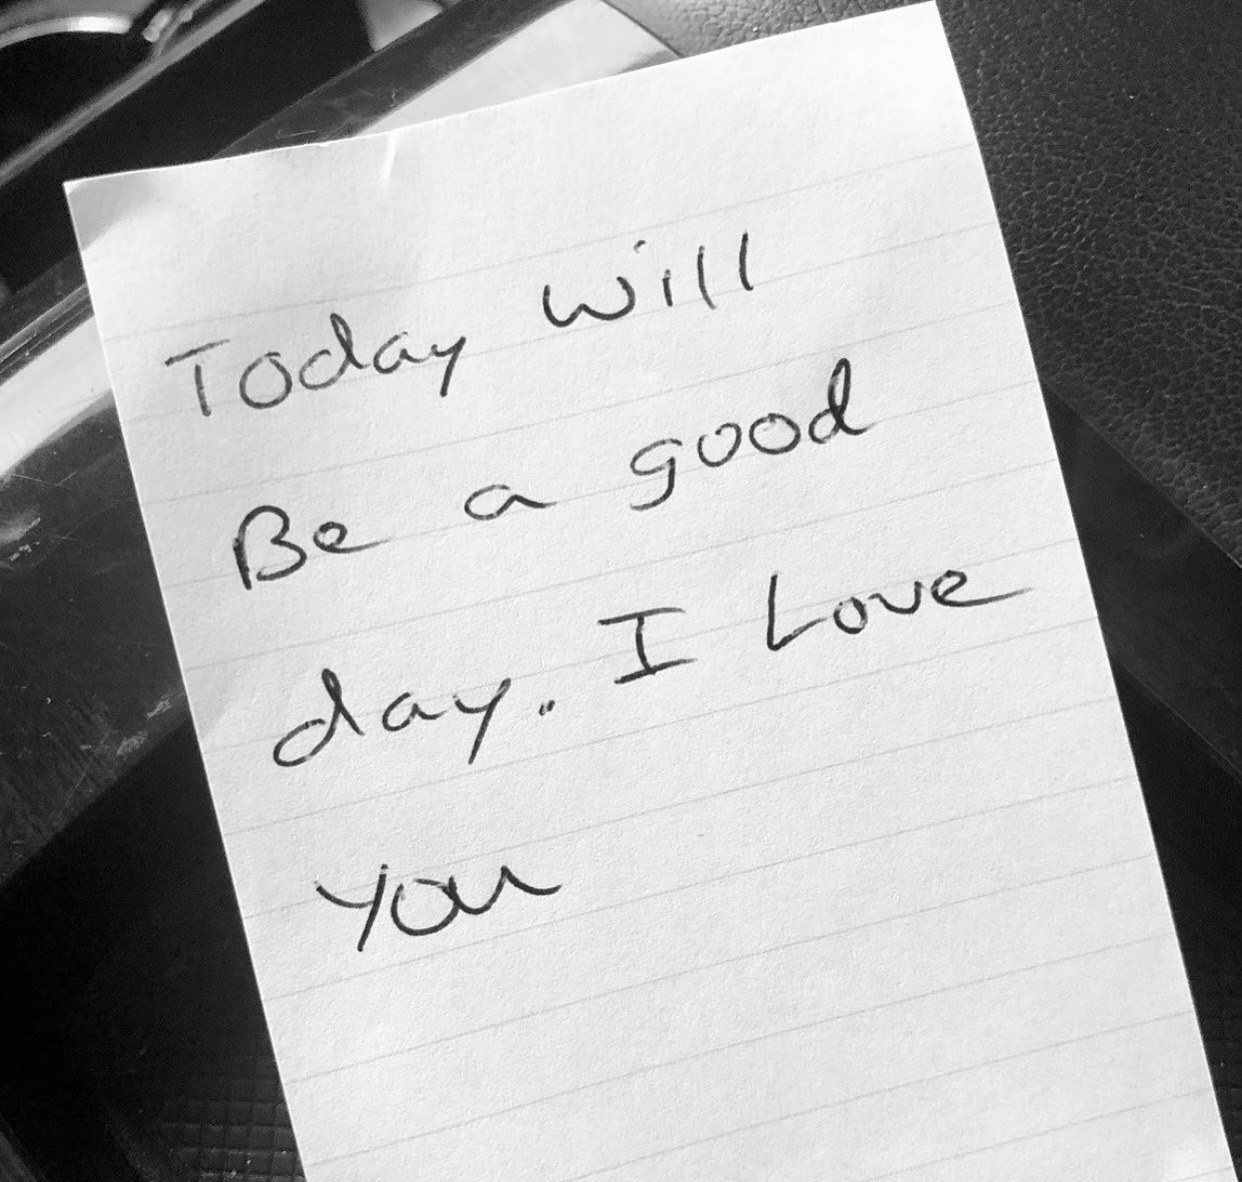 Today will
Be a good
day. I Love
you